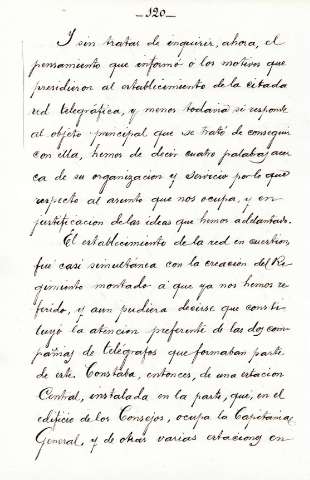 -120-
Y sin tratar de inquirir, ahora, el
pensamiento que informó o los motivos que
presidieron al establecimiento de la citada
red telegráfica, y menos todavía si responde
al objeto principal que se trató de conseguir
con ella, hemos de decir cuatro palabras acer
ca de su organizacion y servicio por lo que
respecto al asunto que nos ocupa, y en
justificacion de las ideas que hemos adelantado.
El establecimiento de la red en cuestion,
fué casi simultánea con la creacion del Re
gimiento montado á que ya nos hemos re
ferido, y aun pudiera decirse que consti
tuyó la atencion preferente de las dos com
pañias de telégrafos que formaban parte
de este. Constaba, entonces, de una estacion
Central, instalada en la parte, que, en el
edificio de los Consejos, ocupa la Capitanía
General, y de otras varias estaciones en